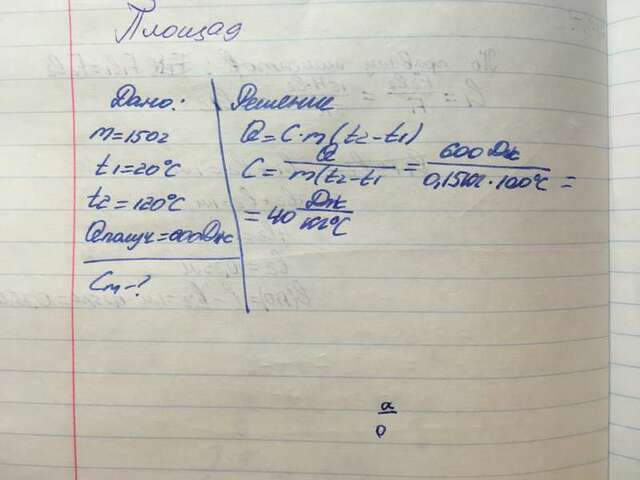 Площад
Дано:
m=150г
t1=20°C
t2=120°C
Qполуч=600Дж
Cm-?
Решение
Q=C·m(t2-t1)
C= Q / m(t2-t1 = 600Дж / 0,15кг·100°C =
=40 Дж / кг°C
a
0